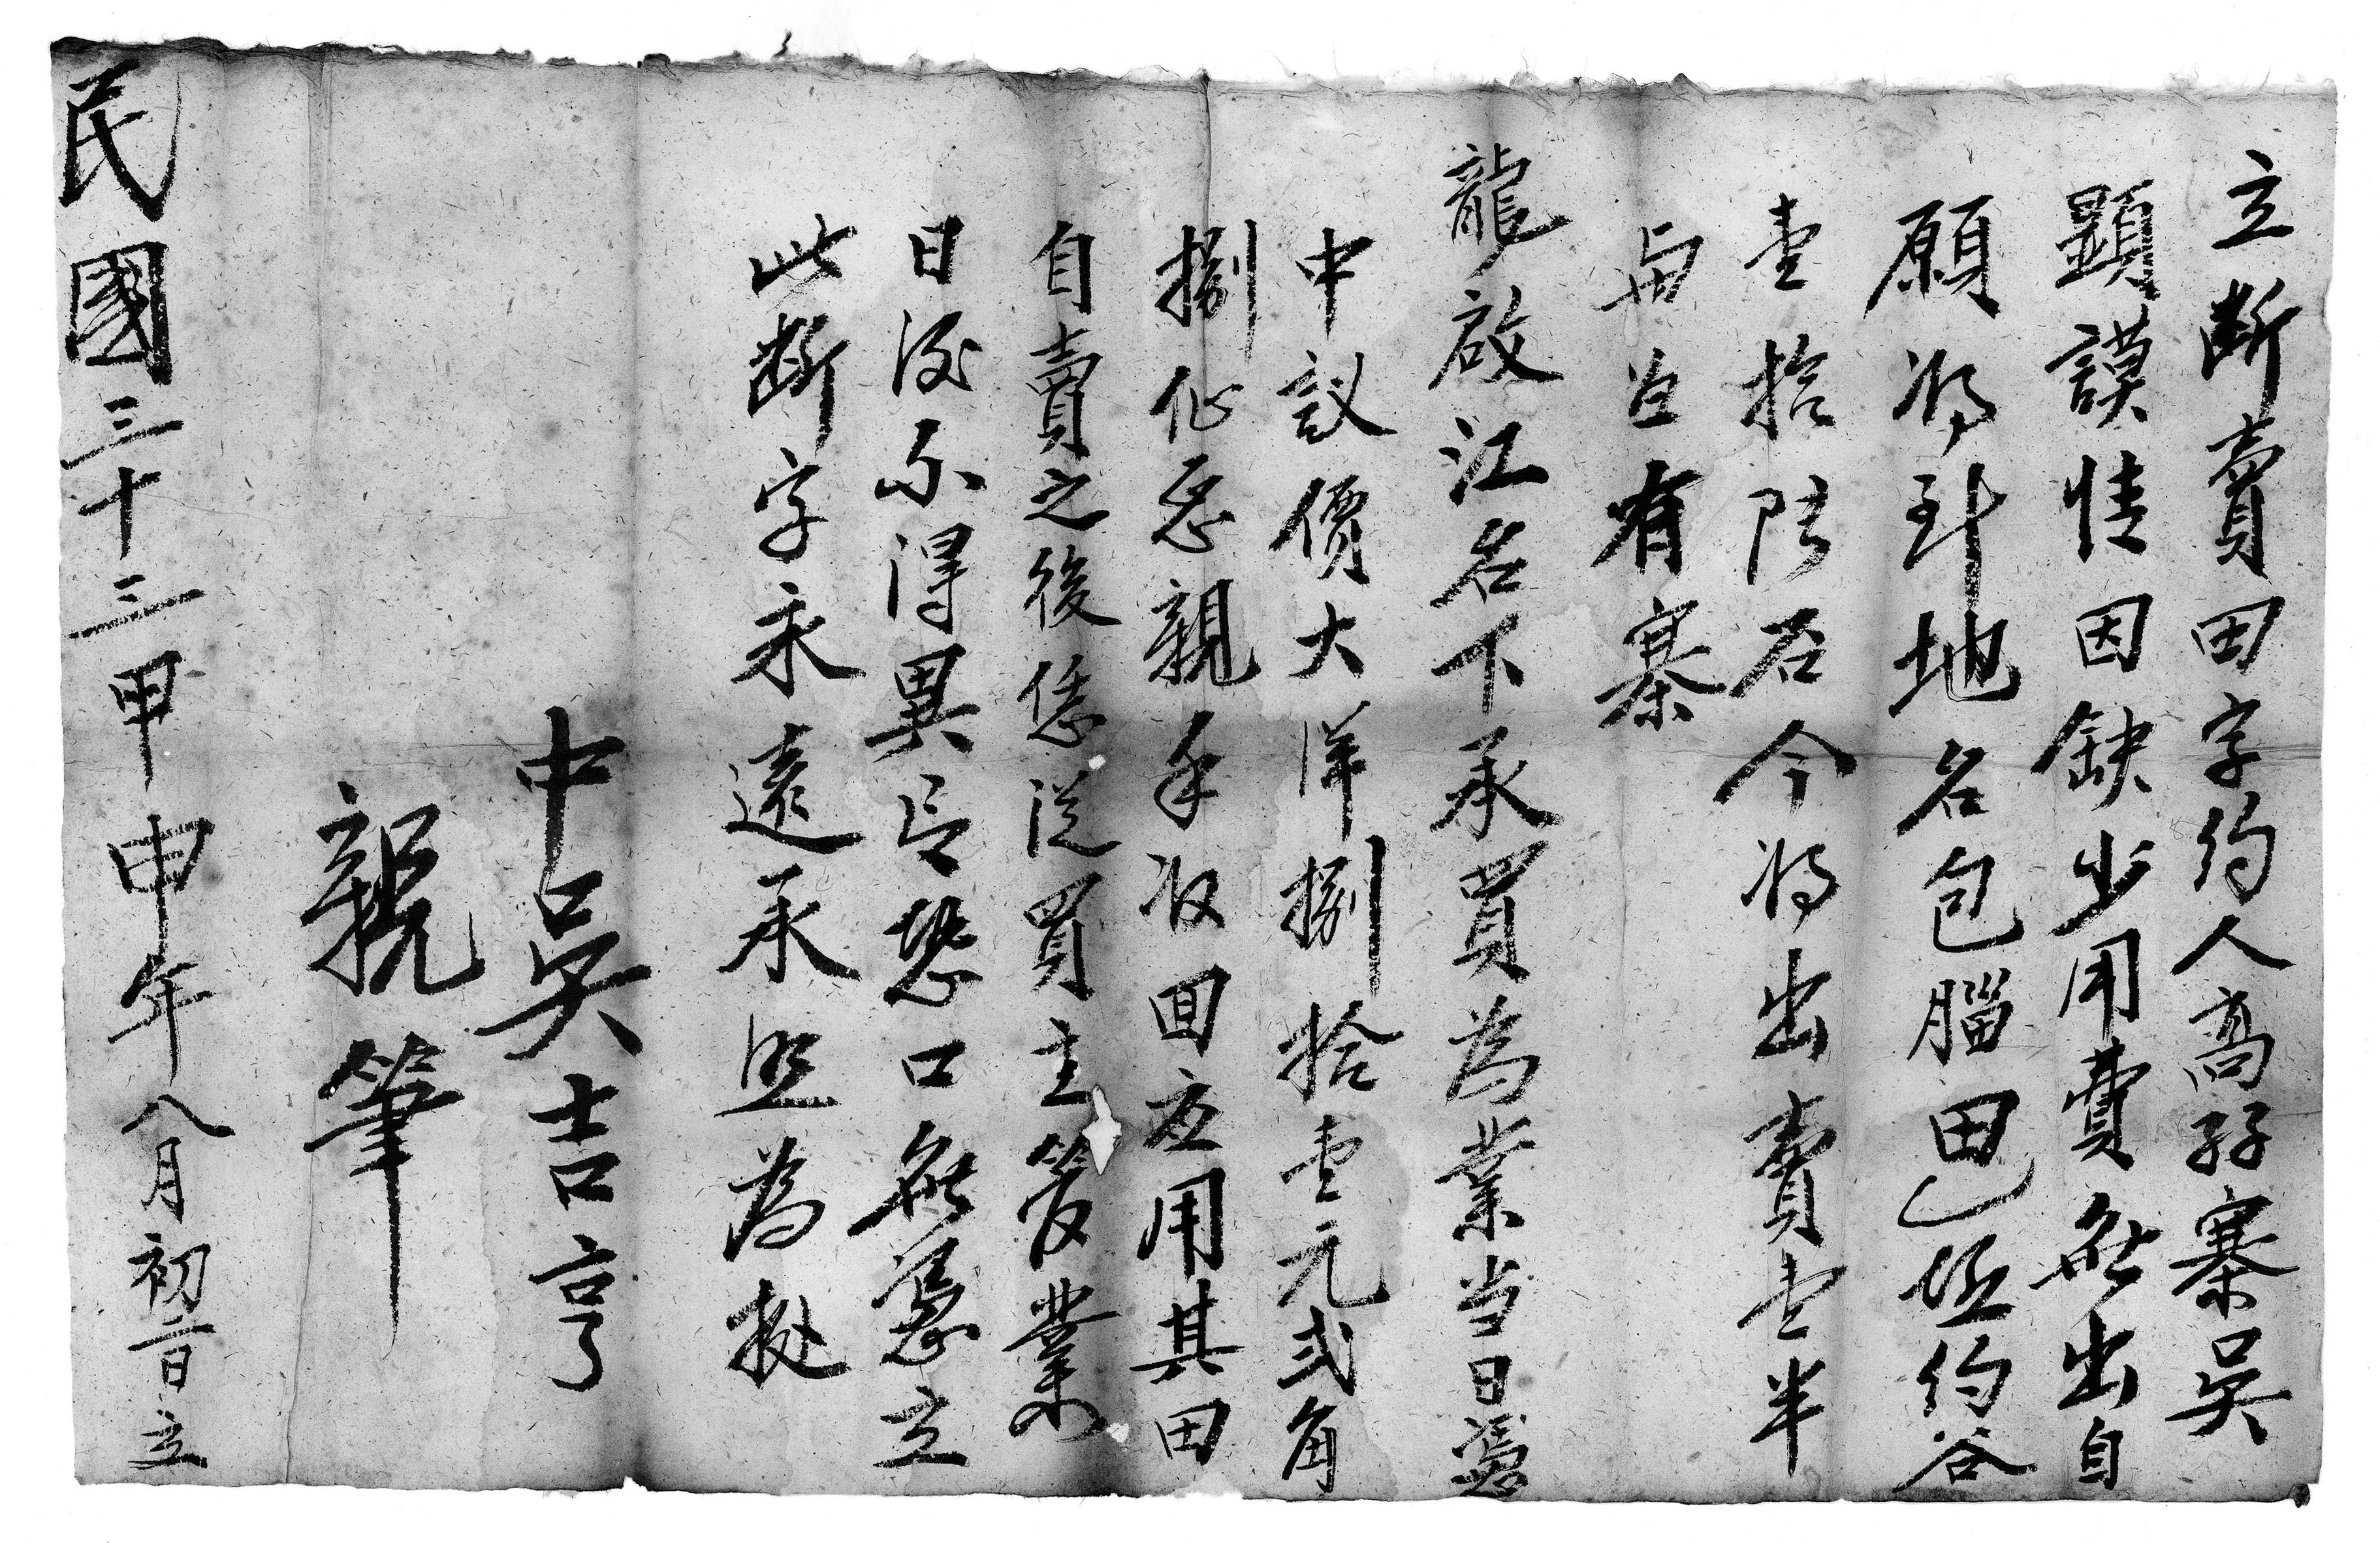 立断賣田字約人高孖寨吴
顕謨情因缺少用費無出自
願将到地名包腦田一坵約谷
壹拾陸石今将出賣壹半
与自有寨
龍啟江名下承買為業当日憑
中議價大洋捌拾壹元弍角
捌仙 親手收回应用其田
自賣之後恁從買主管業
日後不得異言恐口無憑立
此断字永遠承照為挋
中吴吉亨
親筆
民國三十三甲申年八月初二日立